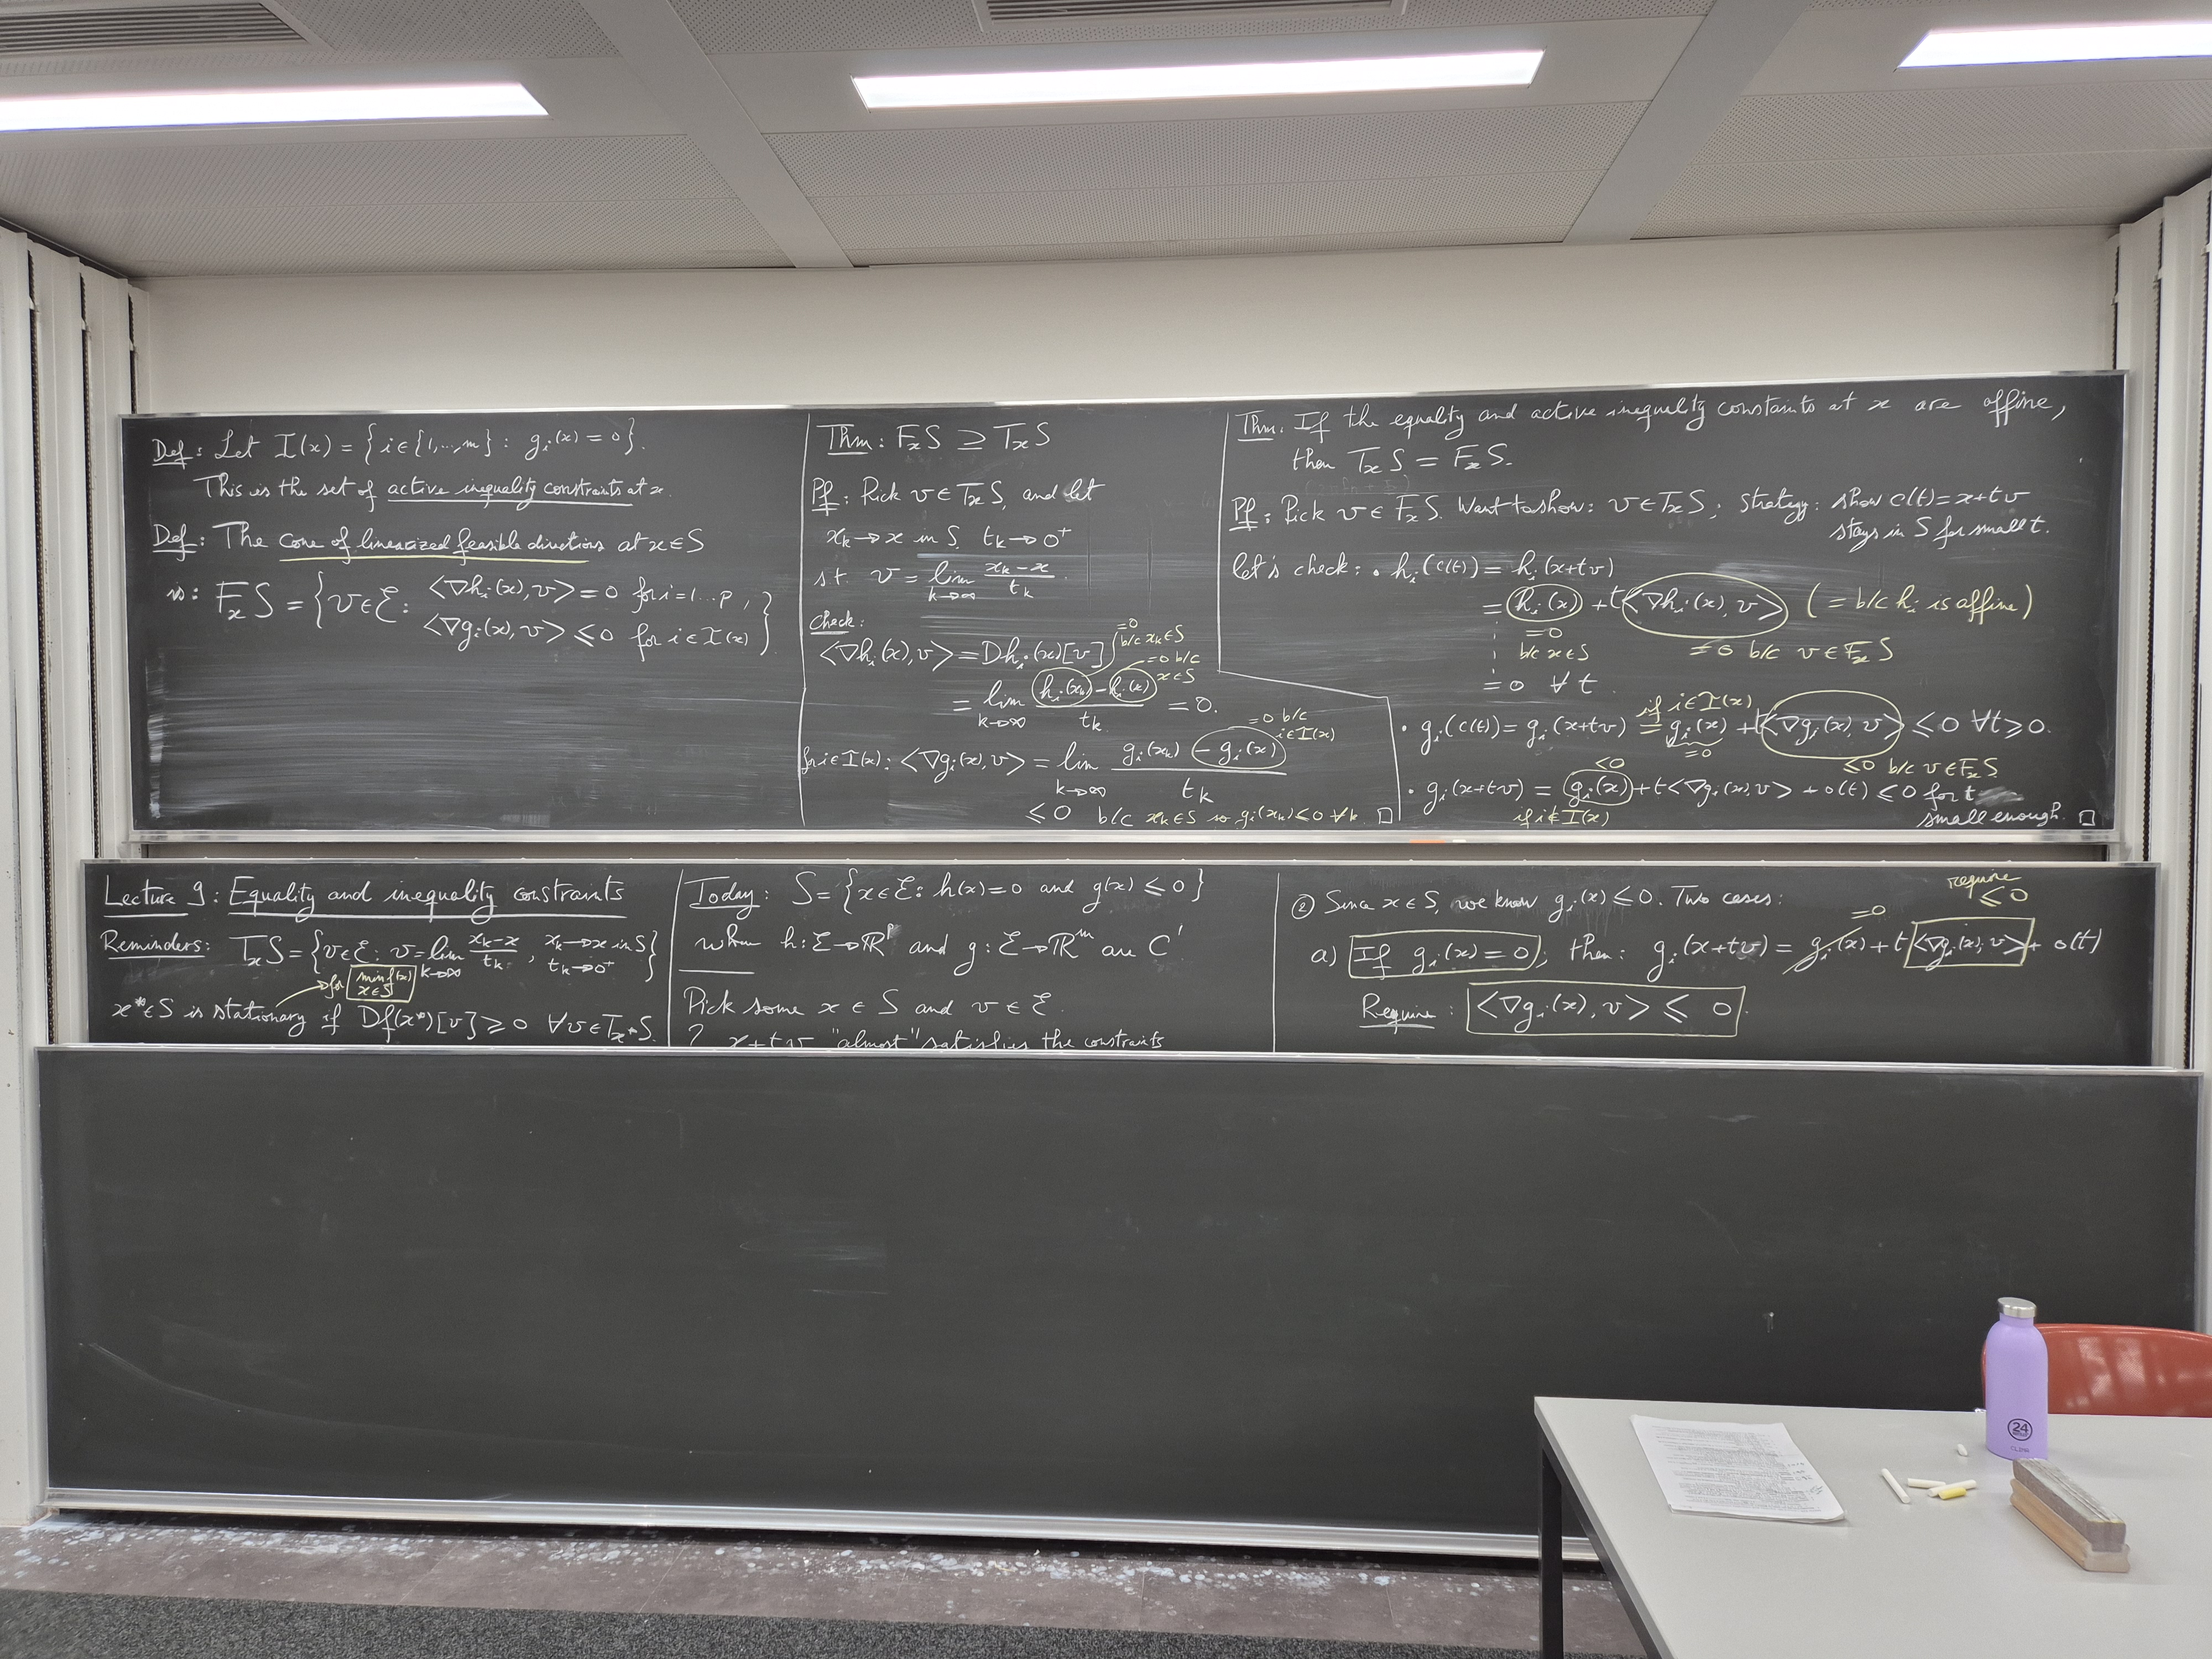 Def: Let I(x) = {i ∈ {1,...,m} : gᵢ(x) = 0}.
This is the set of active inequality constraints at x.
Def: The cone of linearized feasible directions at x ∈ S
is: FₓS = {v ∈ ℰ : ⟨∇hᵢ(x), v⟩ = 0 for i = 1...p,
⟨∇gᵢ(x), v⟩ ≤ 0 for i ∈ I(x)}
Thm: FₓS ⊇ TₓS
Pf: Pick v ∈ TₓS, and let
xₖ → x in S, tₖ → 0⁺
st v = lim_{k→∞} (xₖ - x)/tₖ.
check:
⟨∇hᵢ(x), v⟩ = Dhᵢ(x)[v]
= lim_{k→∞} (hᵢ(xₖ) - hᵢ(x))/tₖ = 0.
=0 b/c xₖ ∈ S
=0 b/c x ∈ S
for i ∈ I(x): ⟨∇gᵢ(x), v⟩ = lim_{k→∞} (gᵢ(xₖ) - gᵢ(x))/tₖ
=0 b/c i ∈ I(x)
≤ 0 b/c xₖ ∈ S so gᵢ(xₖ) ≤ 0 ∀k □
Thm: If the equality and active inequality constaints at x are affine,
then TₓS = FₓS.
Pf: Pick v ∈ FₓS. Want to show: v ∈ TₓS; strategy: show c(t) = x+tv
stays in S for small t.
let's check: • hᵢ(c(t)) = hᵢ(x+tv)
= hᵢ(x) + t⟨∇hᵢ(x), v⟩ (= b/c hᵢ is affine)
=0 b/c x ∈ S
=0 b/c v ∈ FₓS
= 0 ∀ t
if i ∈ I(x)
• gᵢ(c(t)) = gᵢ(x+tv) = gᵢ(x) + t⟨∇gᵢ(x), v⟩ ≤ 0 ∀t ≥ 0.
=0
≤0 b/c v ∈ FₓS
<0
• gᵢ(x+tv) = gᵢ(x) + t⟨∇gᵢ(x), v⟩ + o(t) ≤ 0 for t
if i ∉ I(x)
small enough. □
Lecture 9: Equality and inequality constraints
Reminders: TₓS = {v ∈ ℰ : v = lim_{k→∞} (xₖ - x)/tₖ, xₖ → x in S, tₖ → 0⁺}
for min_{x∈S} f(x)
x* ∈ S is stationary if Df(x*)[v] ≥ 0 ∀v ∈ T_{x*}S.
Today: S = {x ∈ ℰ : h(x) = 0 and g(x) ≤ 0}
where h: ℰ → ℝᵖ and g: ℰ → ℝᵐ are C¹
Pick some x ∈ S and v ∈ ℰ.
? x+tv "almost" satisfies the constraints
② Since x ∈ S, we know gᵢ(x) ≤ 0. Two cases:
require ≤ 0
=0
a) If gᵢ(x) = 0, then: gᵢ(x+tv) = gᵢ(x) + t⟨∇gᵢ(x), v⟩ + o(t)
Require: ⟨∇gᵢ(x), v⟩ ≤ 0.
24